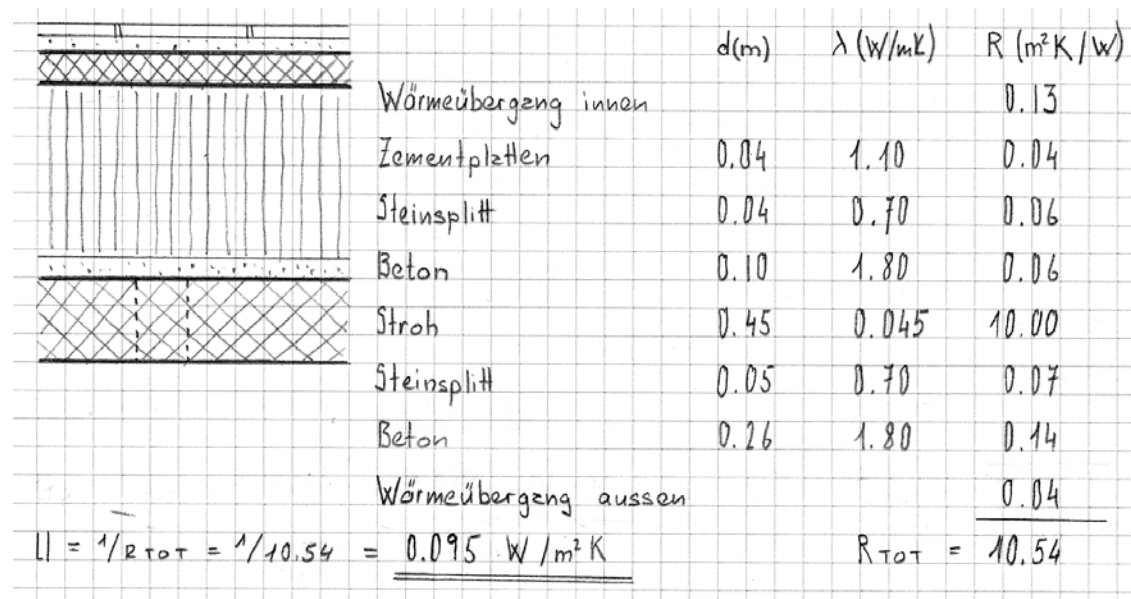 d(m) λ (W/mK) R (m²K/W)
Wärmeübergang innen 0.13
Zementplatten 0.04 1.10 0.04
Steinsplitt 0.04 0.70 0.06
Beton 0.10 1.80 0.06
Stroh 0.45 0.045 10.00
Steinsplitt 0.05 0.70 0.07
Beton 0.26 1.80 0.14
Wärmeübergang aussen 0.04
U = 1/R TOT = 1/10.54 = 0.095 W/m²K R TOT = 10.54